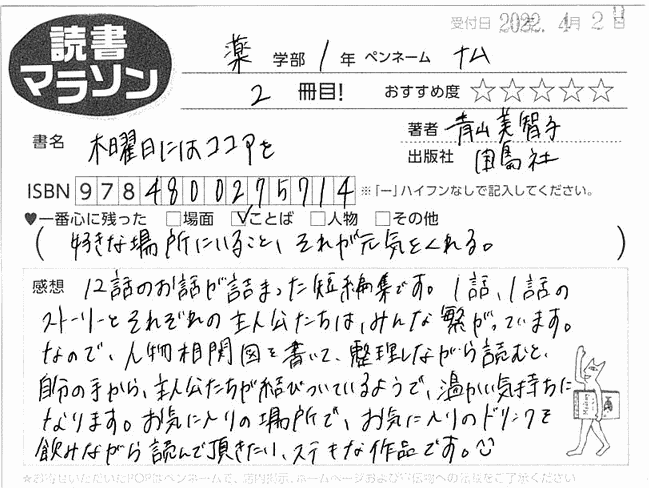 受付日 2022年 4月 2日
読書
マラソン
薬 学部 1 年 ペンネーム ナム
2 冊目! おすすめ度 ☆☆☆☆☆
書名 木曜日にはココアを
著者 青山美智子
出版社
ISBN 9784800275714 ※「ー」ハイフンなしで記入してください。
♥一番心に残った □場面 ☑ことば □人物 □その他
( 好きな場所にいること、それが元気をくれる。 )
感想 12話のお話が詰まった短編集です。1話、1話の
ストーリーとそれぞれの主人公たちは、みんな繋がっています。
なので、人物相関図を書いて、整理しながら読むと、
自分の手から、主人公たちが結びついているようで、温かい気持ちに
なります。お気に入りの場所で、お気に入りのドリンクを
飲みながら読んで頂きたい、ステキな作品です。
☆お寄せいただいたPOPはペンネームで、店内掲示、ホームページおよび